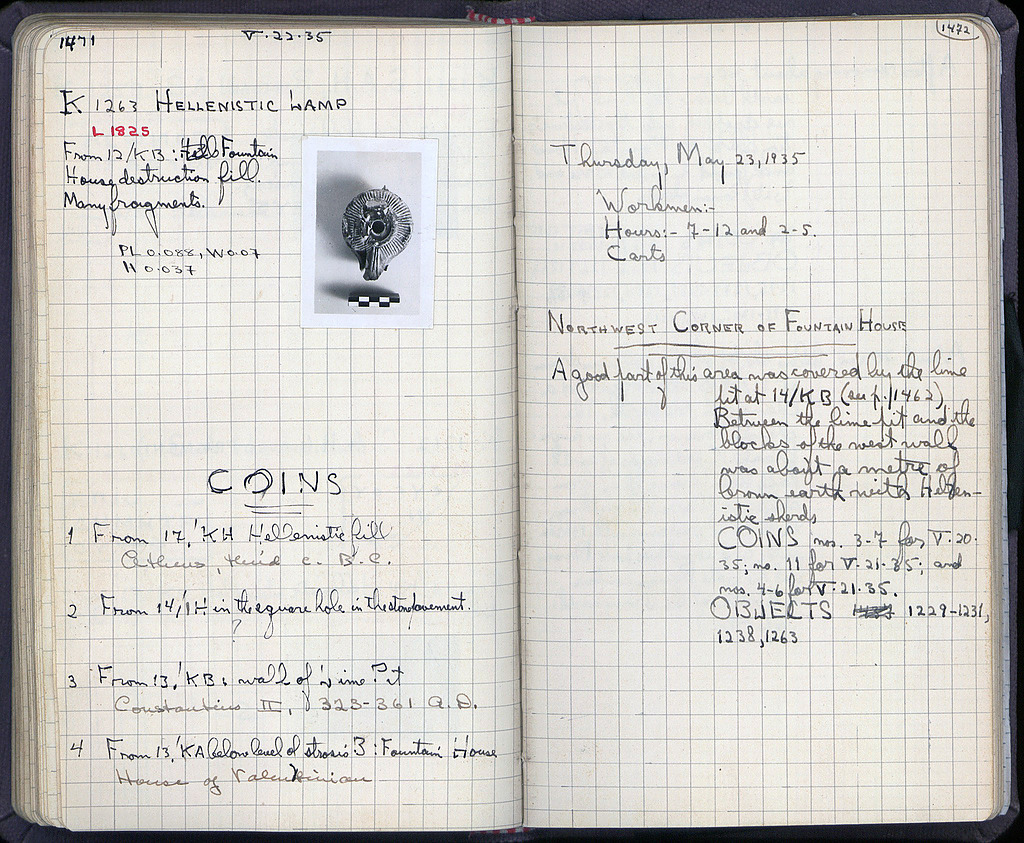 1471
V·22·35
K 1263 HELLENISTIC LAMP
L 1825
From 12/KB: Fountain
House destruction fill.
Many fragments.
PL 0.088, W 0.07
H 0.037
COINS
1 From 17/KH Hellenistic fill
Athens, third c. B.C.
2 From 14/ΙΗ in the square hole in the stone pavement.
?
3 From 13/KB: wall of Lime Pit
Constantius II, 323-361 A.D.
4 From 13/KA below level of strosis 3: Fountain House
House of Valentinian
1472
Thursday, May 23, 1935
Workmen:-
Hours:- 7-12 and 2-5.
Carts
NORTHWEST CORNER OF FOUNTAIN HOUSE
A good part of this area was covered by the lime
pit at 14/KB (see p. 1462)
Between the lime pit and the
blocks of the west wall
was about a metre of
brown earth with Hellen-
istic sherds
COINS nos. 3-7 for V·20·
35; no. 11 for V·21·35; and
nos. 4-6 for V·21·35.
OBJECTS 1229-1231,
1238, 1263